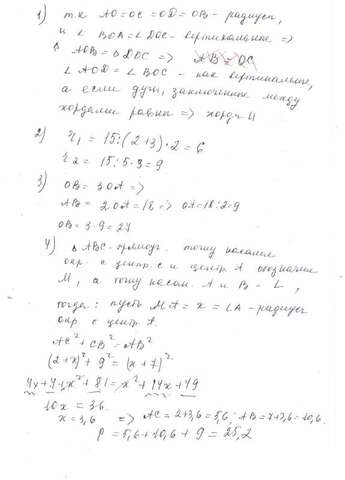 1) т.к AO=OC=OD=OB - радиусы,
и ∠BOA=∠DOC - вертикальные =>
△AOB=△DOC =>
∠AOD=∠BOC - как вертикальные,
а если дуги, заключенные между
хордами равны => хорды ||
2) r₁ = 15:(2+3)·2=6
r₂ = 15:5·3=9
3) OB=3OA=>
AB=2OA=18=> OA=18:2=9
OB=3·9=27
4) △ABC-прямоуг. точку касания
окр. с центр. C и центр. A обозначим
M, а точку касан. A и B - L,
тогда: пусть MA=x=LA-радиус
окр. с центр. A.
AC²+CB²=AB²
(2+x)²+9²=(x+7)²
4x+4+x²+81=x²+14x+49
10x=36
x=3,6 => AC=2+3,6=5,6; AB=7+3,6=10,6.
P=5,6+10,6+9=25,2